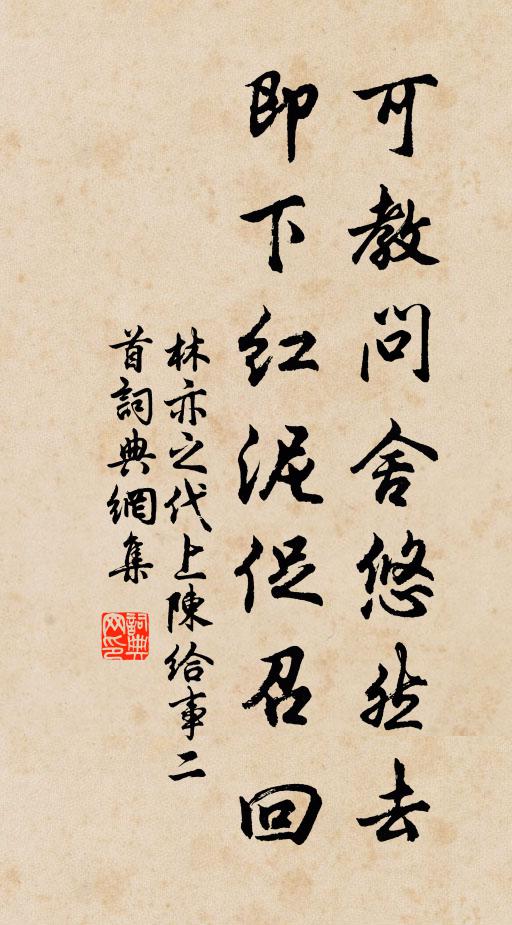 可教問舍悠然去
即下红泥促召回
林亦之代上陳給事二
首詞典網集
詞典网印